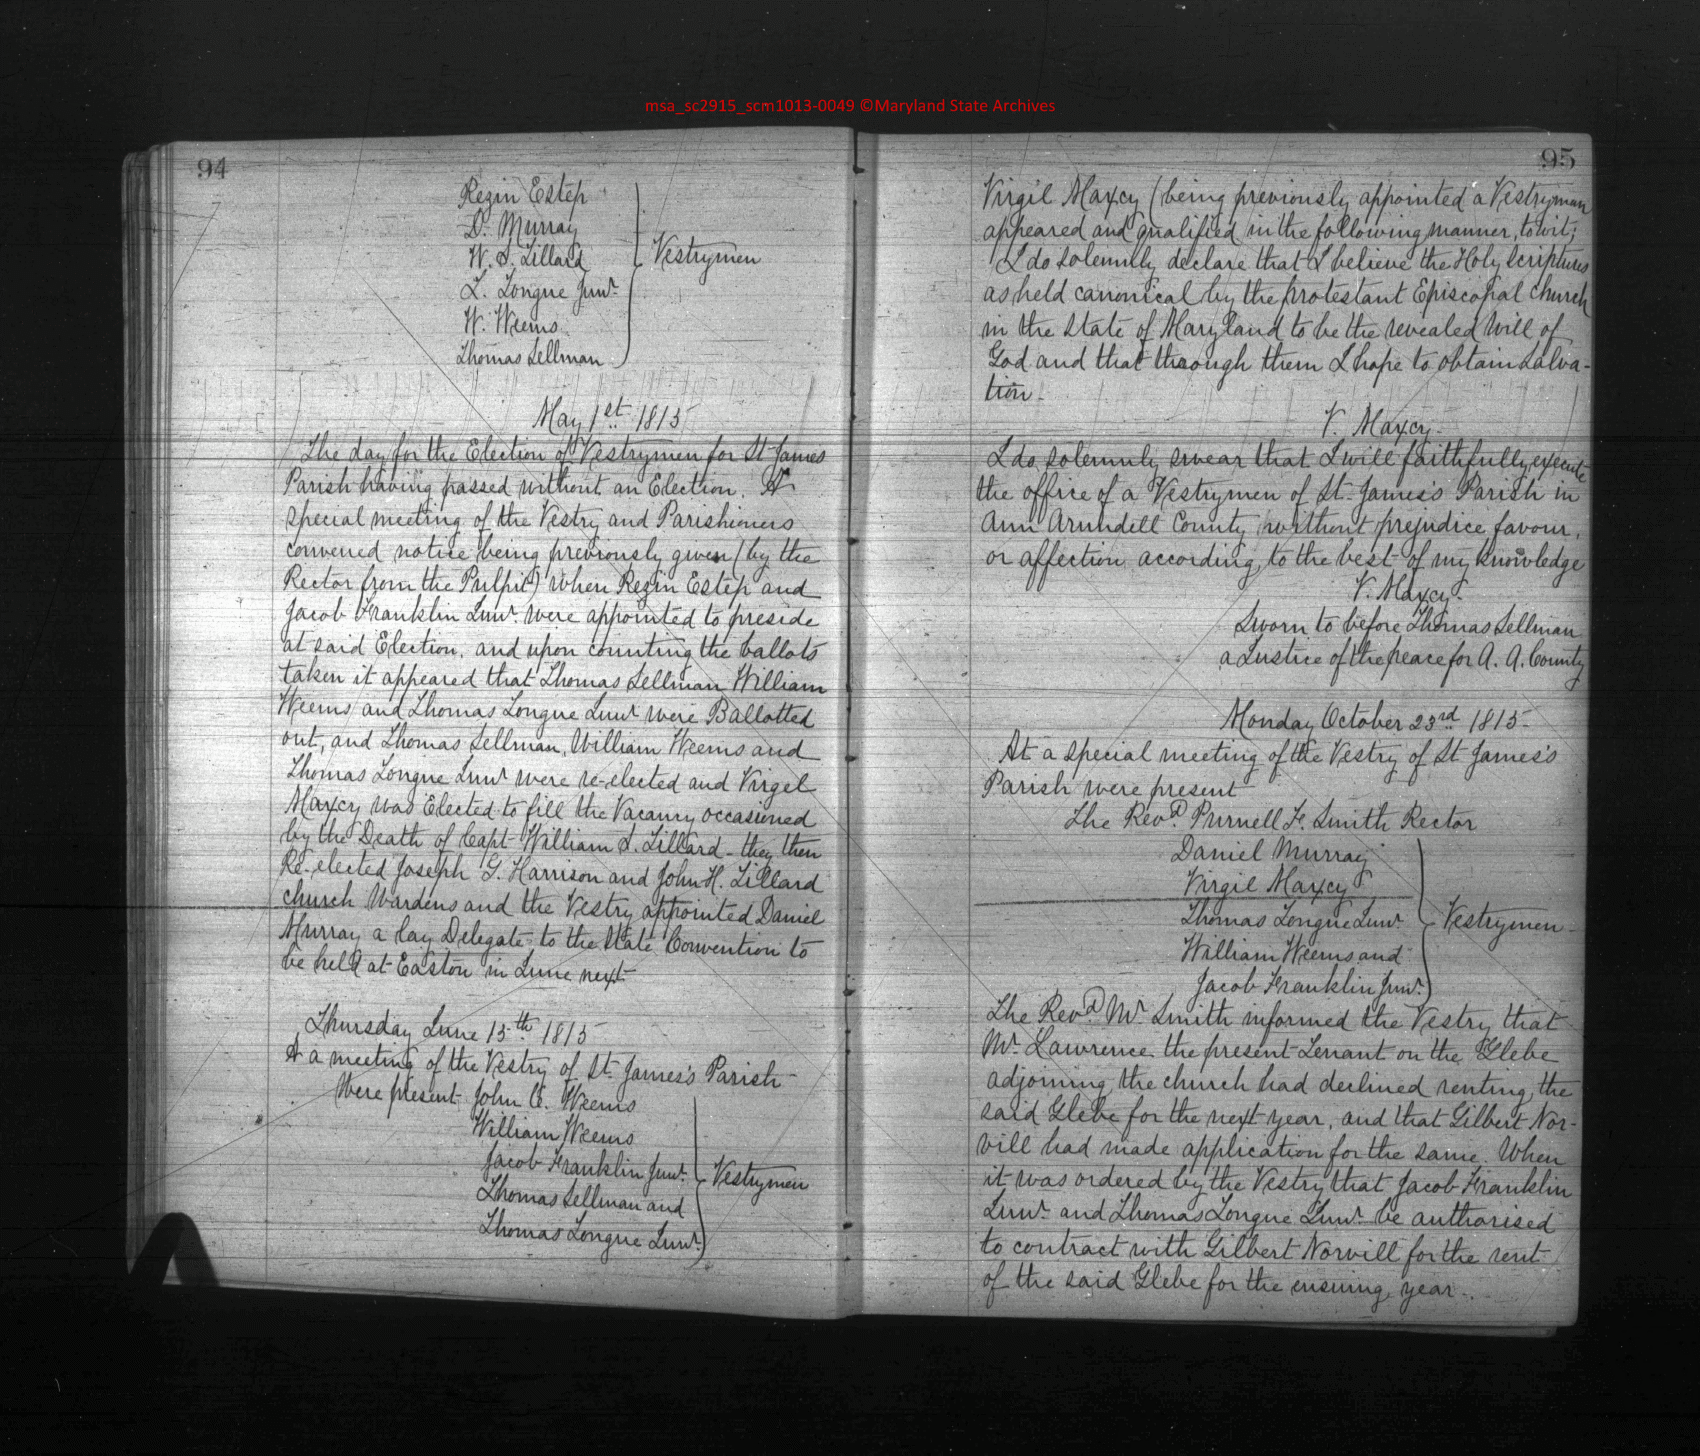 msa_sc2915_scm1013-0049 ©Maryland State Archives
94
Rezin Estep
D. Murray
W. S. Lillard
Vestrymen
L. Tongue Junr.
W. Weems
Thomas Sellman
May 1st. 1815
The day for the Election of Vestrymen for St James
Parish having passed without an Election. A
special meeting of the Vestry and Parishioners
convened notice being previously given (by the
Rector from the Pulpit) when Rezin Estep and
Jacob Franklin Junr. were appointed to preside
at said Election, and upon counting the ballots
taken it appeared that Thomas Sellman William
Weems and Thomas Tongue Junr were Ballotted
out, and Thomas Sellman, William Weems and
Thomas Tongue Junr were re-elected and Virgel
Maxcy was Elected to fill the Vacancy occasioned
by the Death of Capt William S. Lillard - they then
Re-elected Joseph G. Harrison and John H. Lillard
church Wardens and the Vestry appointed Daniel
Murray a lay Delegate to the State Convention to
be held at Easton in June next
Thursday June 15th. 1815
At a meeting of the Vestry of St. James's Parish
Were present John C. Weems
William Weems
Jacob Franklin Junr.
Vestrymen
Thomas Sellman and
Thomas Tongue Junr.
95
Virgil Maxcy (being previously appointed a Vestryman
appeared and qualified in the following manner, to wit;
I do solemnly declare that I believe the Holy Scriptures
as held canonical by the protestant Episcopal church
in the state of Maryland to be the revealed will of
God and that through them I hope to obtain salva-
tion.
V. Maxcy.
I do solemnly swear that I will faithfully execute
the office of a Vestrymen of St. James's Parish in
Ann Arundell County without prejudice, favour,
or affection according to the best of my knowledge
V. Maxcy.
Sworn to before Thomas Sellman
a Justice of the peace for A. A. County
Monday October 23rd. 1815-
At a special meeting of the Vestry of St James's
Parish were present
The Revd. Purnell F. Smith Rector
Daniel Murray
Virgil Maxcy
Thomas Tongue Junr.
Vestrymen-
William Weems and
Jacob Franklin Junr.
The Revd. Mr Smith informed the Vestry that
Mr. Lawrence the present Tenant on the Glebe
adjoining the church had declined renting the
said Glebe for the next year, and that Gilbert Nor-
vill had made application for the same. When
it was ordered by the Vestry that Jacob Franklin
Junr. and Thomas Tongue Junr. be authorised
to contract with Gilbert Norvill for the rent
of the said Glebe for the ensuing year.